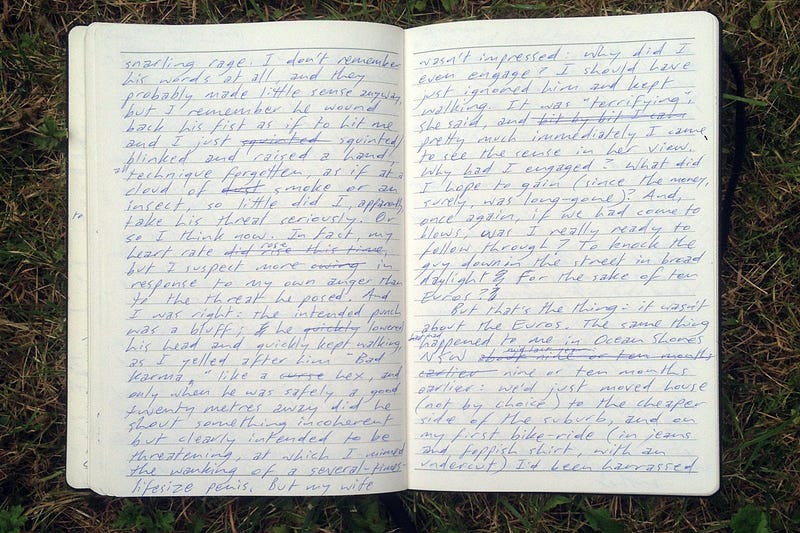 snarling rage. I don't remember
his words at all, and they
probably made little sense anyway,
but I remember he wound
back his fist as if to hit me
and I just squinted squinted/
blinked and raised a hand,
technique forgotten, as if at a
cloud of dust smoke or an
insect, so little did I, apparently,
take his threat seriously. Or
so I think now. In fact, my
heart rate did rise this time, rose
but I suspect more owing in
response to my own anger than
to the threat he posed. And
I was right: the intended punch
was a bluff; he quickly lowered
his head and quickly kept walking,
as I yelled after him "Bad
karma," like a curse hex, and
only when he was safely a good
twenty metres away did he
shout something incoherent
but clearly intended to be
threatening, at which I mimed
the wanking of a several-times-
lifesize penis. But my wife
wasn't impressed: why did I
even engage? I should have
just ignored him and kept
walking. It was "terrifying",
she said, and bit by bit I can
pretty much immediately I came
to see the sense in her view.
Why had I engaged? What did
I hope to gain (since the money,
surely, was long-gone)? And,
once again, if we had come to
blows, was I really ready to
follow through? To knock the
guy down in the street in broad
daylight? For the sake of ten
Euros?
But that's the thing: it wasn't
about the Euros. The same thing
happened to me in Ocean Shores
NSW about nine or ten months
earlier nine or ten months
earlier: we'd just moved house
(not by choice) to the cheaper
side of the suburb, and on
my first bike-ride (in jeans
and foppish shirt, with an
undercut) I'd been harrassed